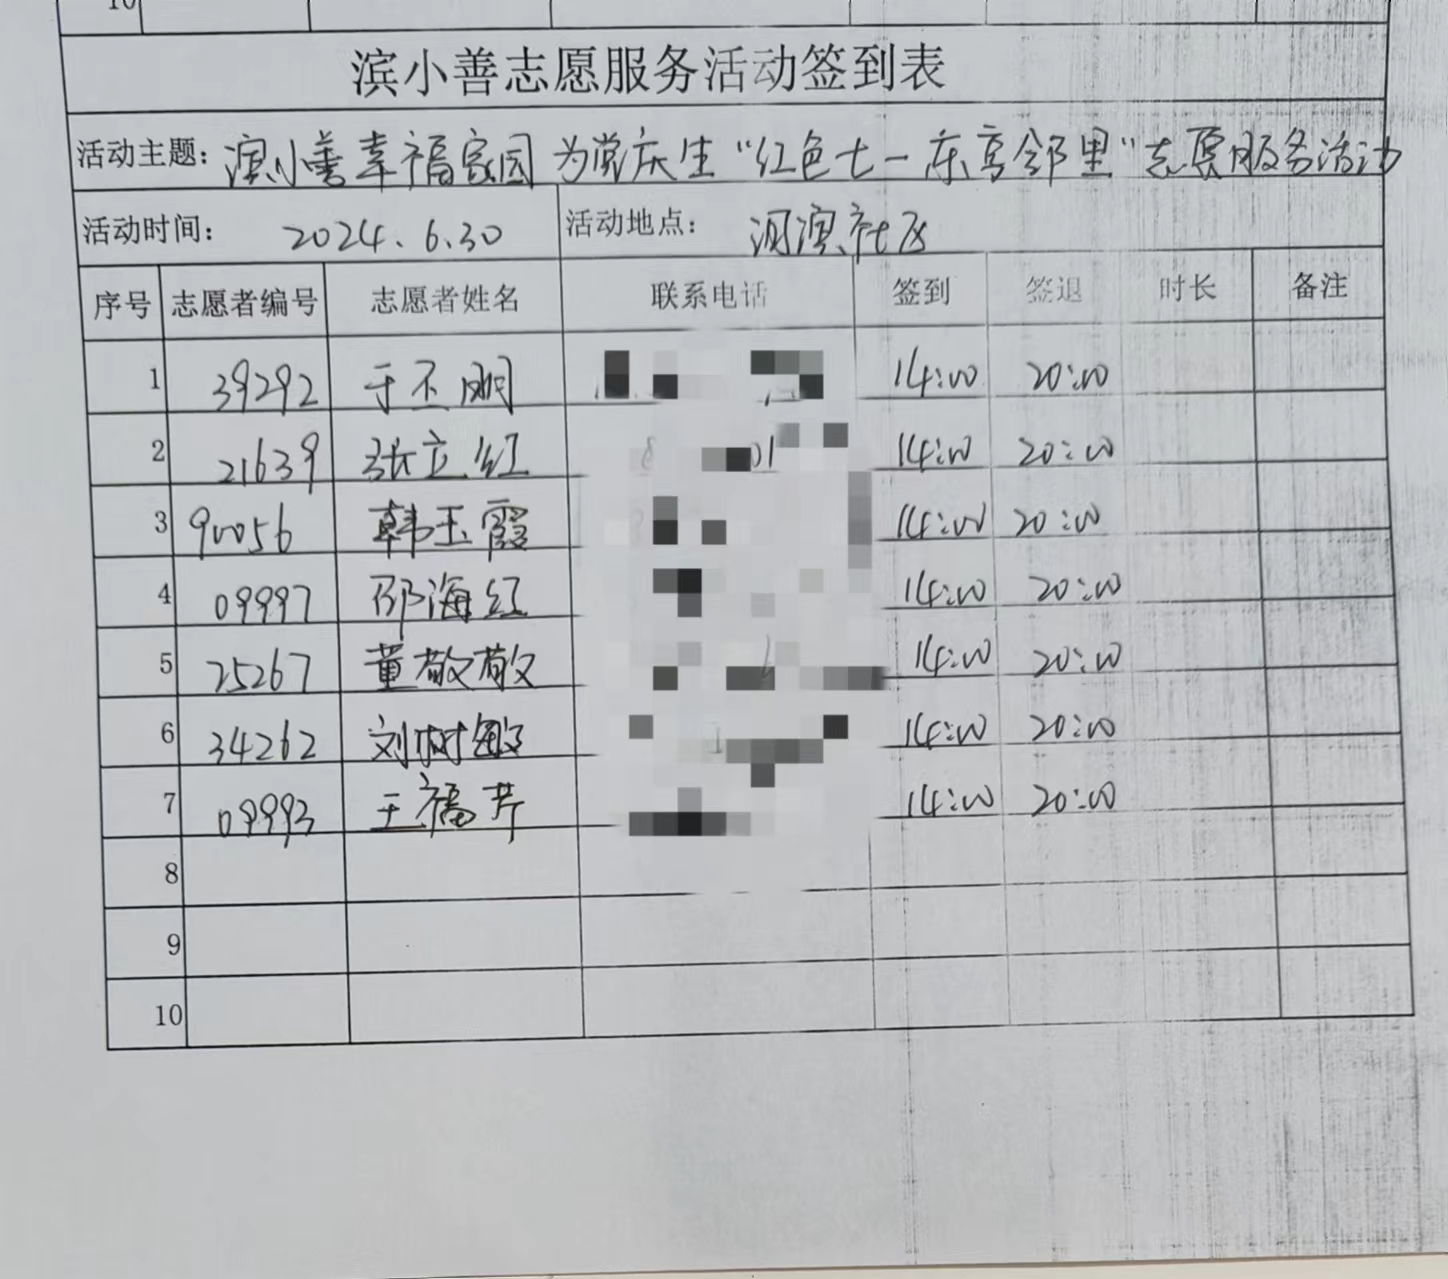 10
滨小善志愿服务活动签到表
活动主题：滨小善幸福家园 为党庆生“红色七一 东亭邻里”志愿服务活动
活动时间： 2024.6.30 活动地点： 社区
序号 志愿者编号 志愿者姓名 联系电话 签到 签退 时长 备注
1 39292 于丕明 14:00 20:00
2 21639 张立红 14:00 20:00
3 90056 韩玉霞 14:00 20:00
4 09997 邵海红 14:00 20:00
5 25267 董敬敬 14:00 20:00
6 34262 刘树敏 14:00 20:00
7 09993 王福芹 14:00 20:00
8
9
10